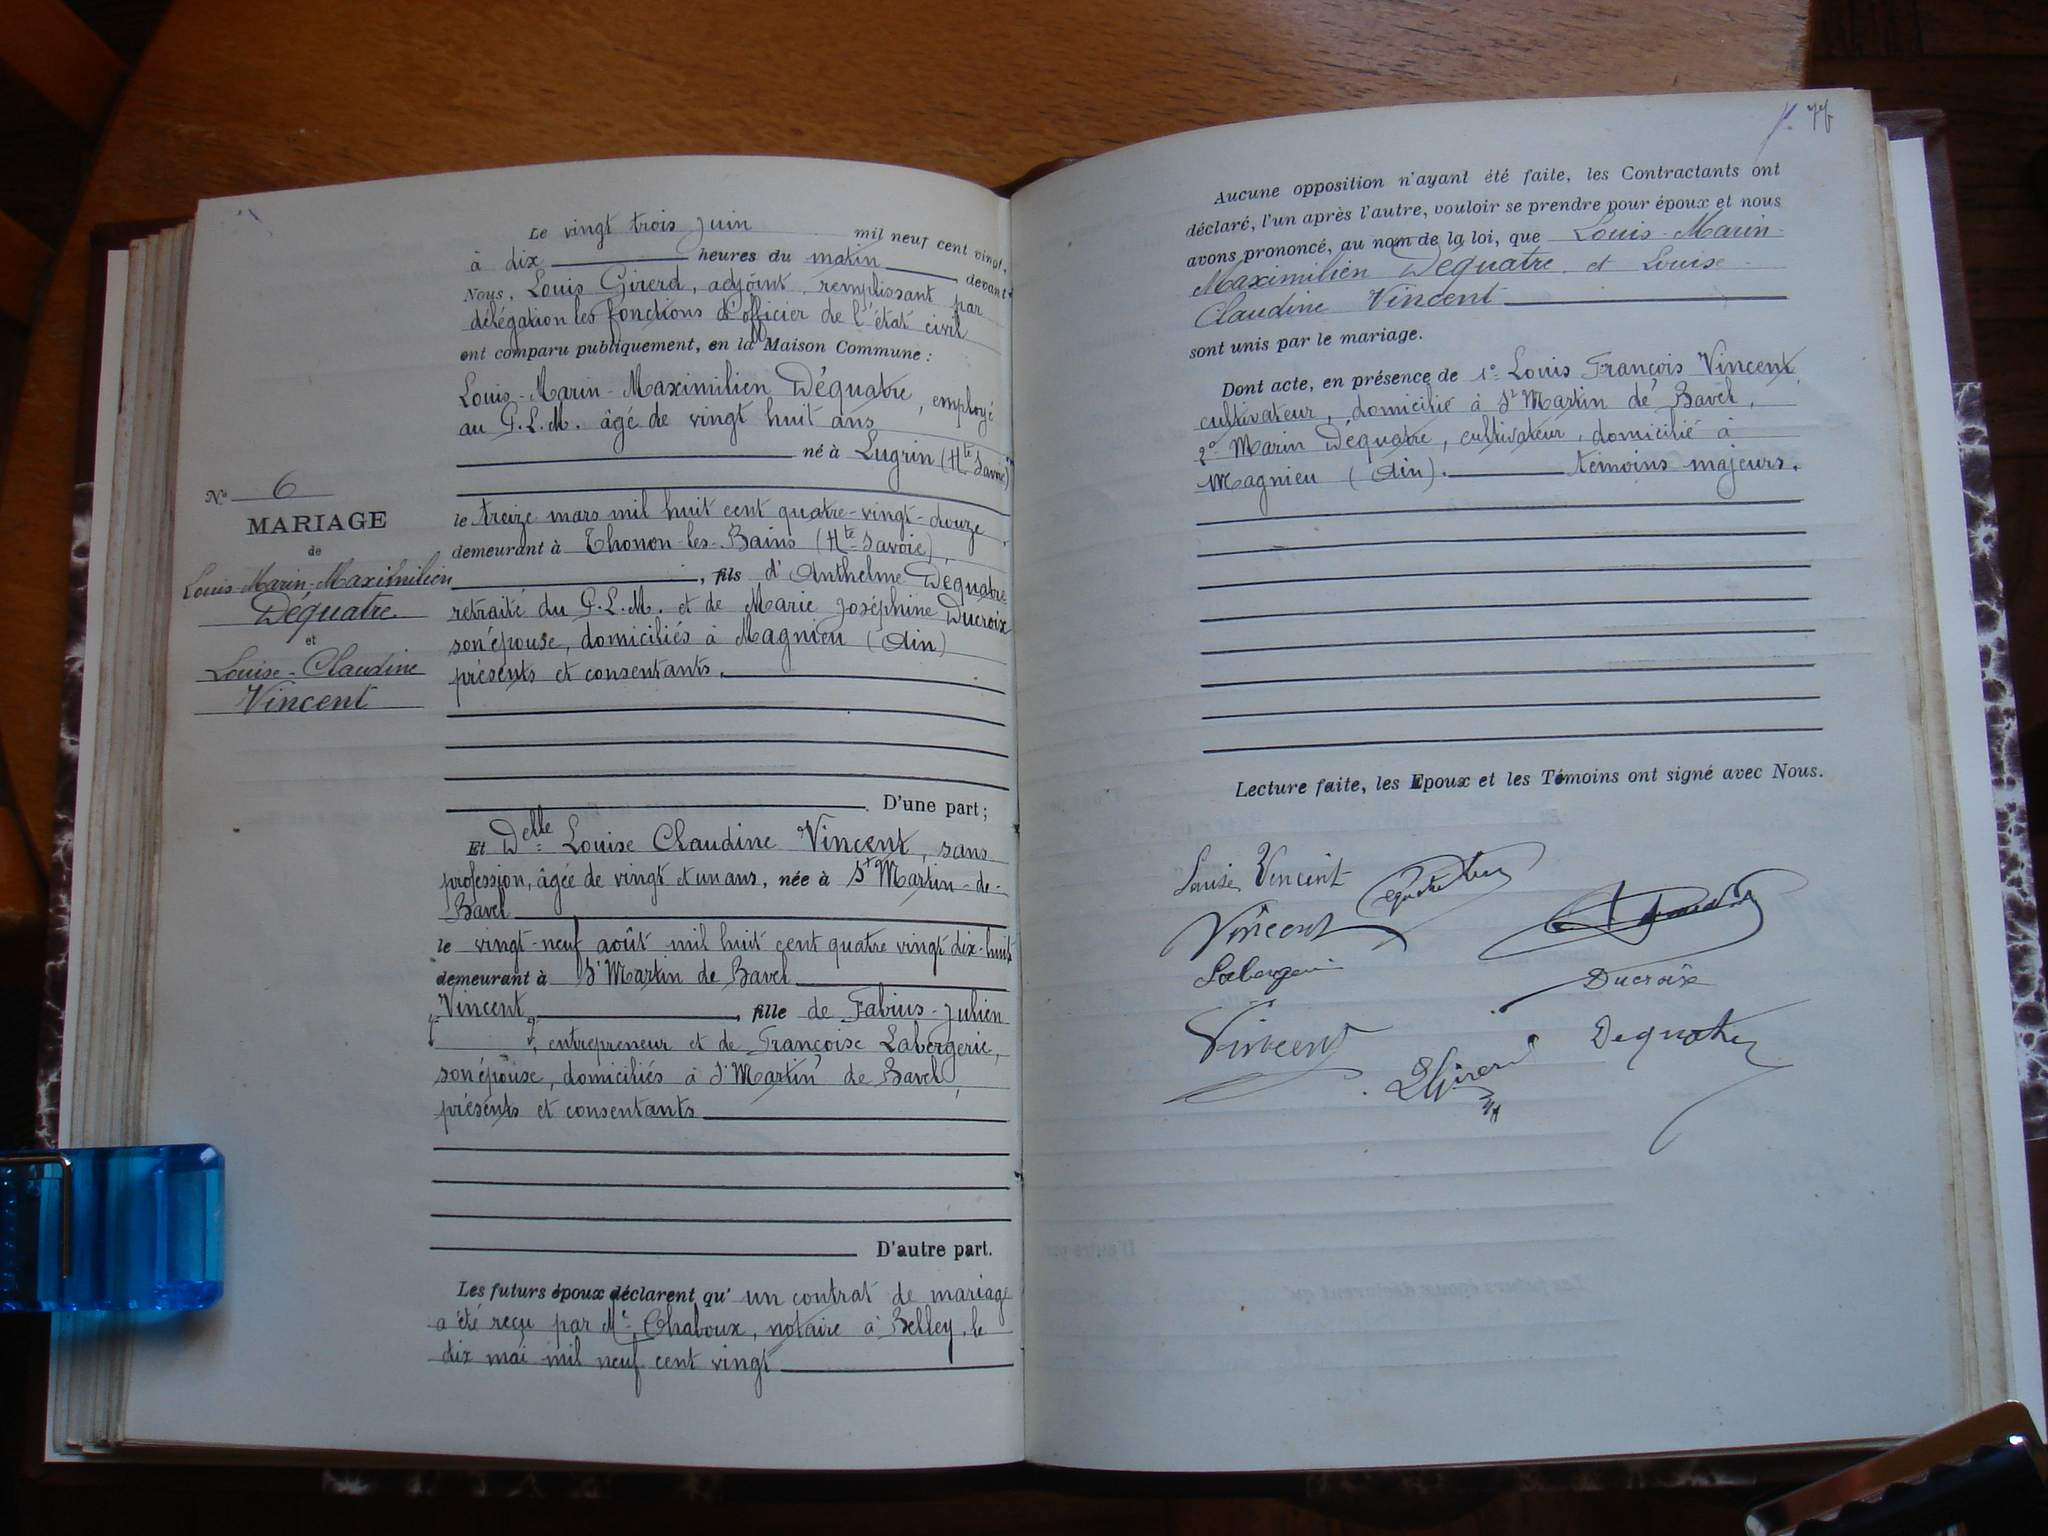 Le vingt trois Juin mil neuf cent vingt,
à dix heures du matin devant
Nous, Louis Girerd, adjoint, remplissant par
délégation les fonctions d'officier de l'état civil
ont comparu publiquement, en la Maison Commune :
Louis-Marin-Maximilien Déquatre, employé
au P.L.M. âgé de vingt huit ans
né à Lugrin (Hte Savoie)
le treize mars mil huit cent quatre-vingt-douze,
demeurant à Thonon-les-Bains (Hte-Savoie),
, fils d'Anthelme Déquatre
retraité du P.L.M. et de Marie Joséphine Ducroix
son épouse, domiciliés à Magnieu (Ain)
présents et consentants.
D'une part ;
N° 6
MARIAGE
de
Louis-Marin-Maximilien
Déquatre
et
Louise-Claudine
Vincent
Et Delle Louise Claudine Vincent, sans
profession, âgée de vingt et un ans, née à St Martin-de-
Bavel
le vingt-neuf août mil huit cent quatre vingt dix-huit
demeurant à St Martin de Bavel
Vincent, fille de Fabius-Julien
, entrepreneur et de Françoise Labergerie,
son épouse, domiciliés à St Martin de Bavel,
présents et consentants
D'autre part.
Les futurs époux déclarent qu'un contrat de mariage
a été reçu par Me Chaboux, notaire à Belley, le
dix mai mil neuf cent vingt
Aucune opposition n'ayant été faite, les Contractants ont
déclaré, l'un après l'autre, vouloir se prendre pour époux et nous
avons prononcé, au nom de la loi, que Louis-Marin-
Maximilien Déquatre et Louise-
Claudine Vincent
sont unis par le mariage.
Dont acte, en présence de 1° Louis François Vincent,
cultivateur, domicilié à St Martin de Bavel,
2° Marin Déquatre, cultivateur, domicilié à
Magnieu (Ain). témoins majeurs.
Lecture faite, les Epoux et les Témoins ont signé avec Nous.
Louise Vincent
Vincent
Labergerie
Ducroix
Vincent
LGirerd
Dequatre